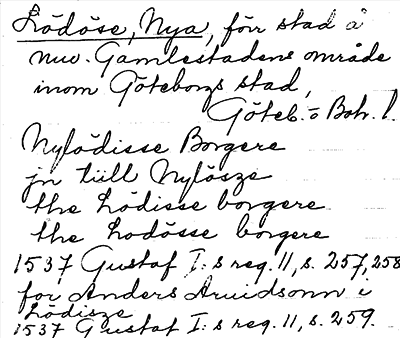 Lödöse, Nya, förr stad å
nuv. Gamlestadens område
inom Göteborgs stad,
Göteb. o Boh. l.
Nylödisse Borgere
jn tiill Nylösze
the Lödisse borgere
the Lodösse borgere
1537 Gustaf I:s reg. 11, s. 257, 258
for Anders Aruidsonn i
Lödisze
1537 Gustaf I:s reg. 11, s. 259.